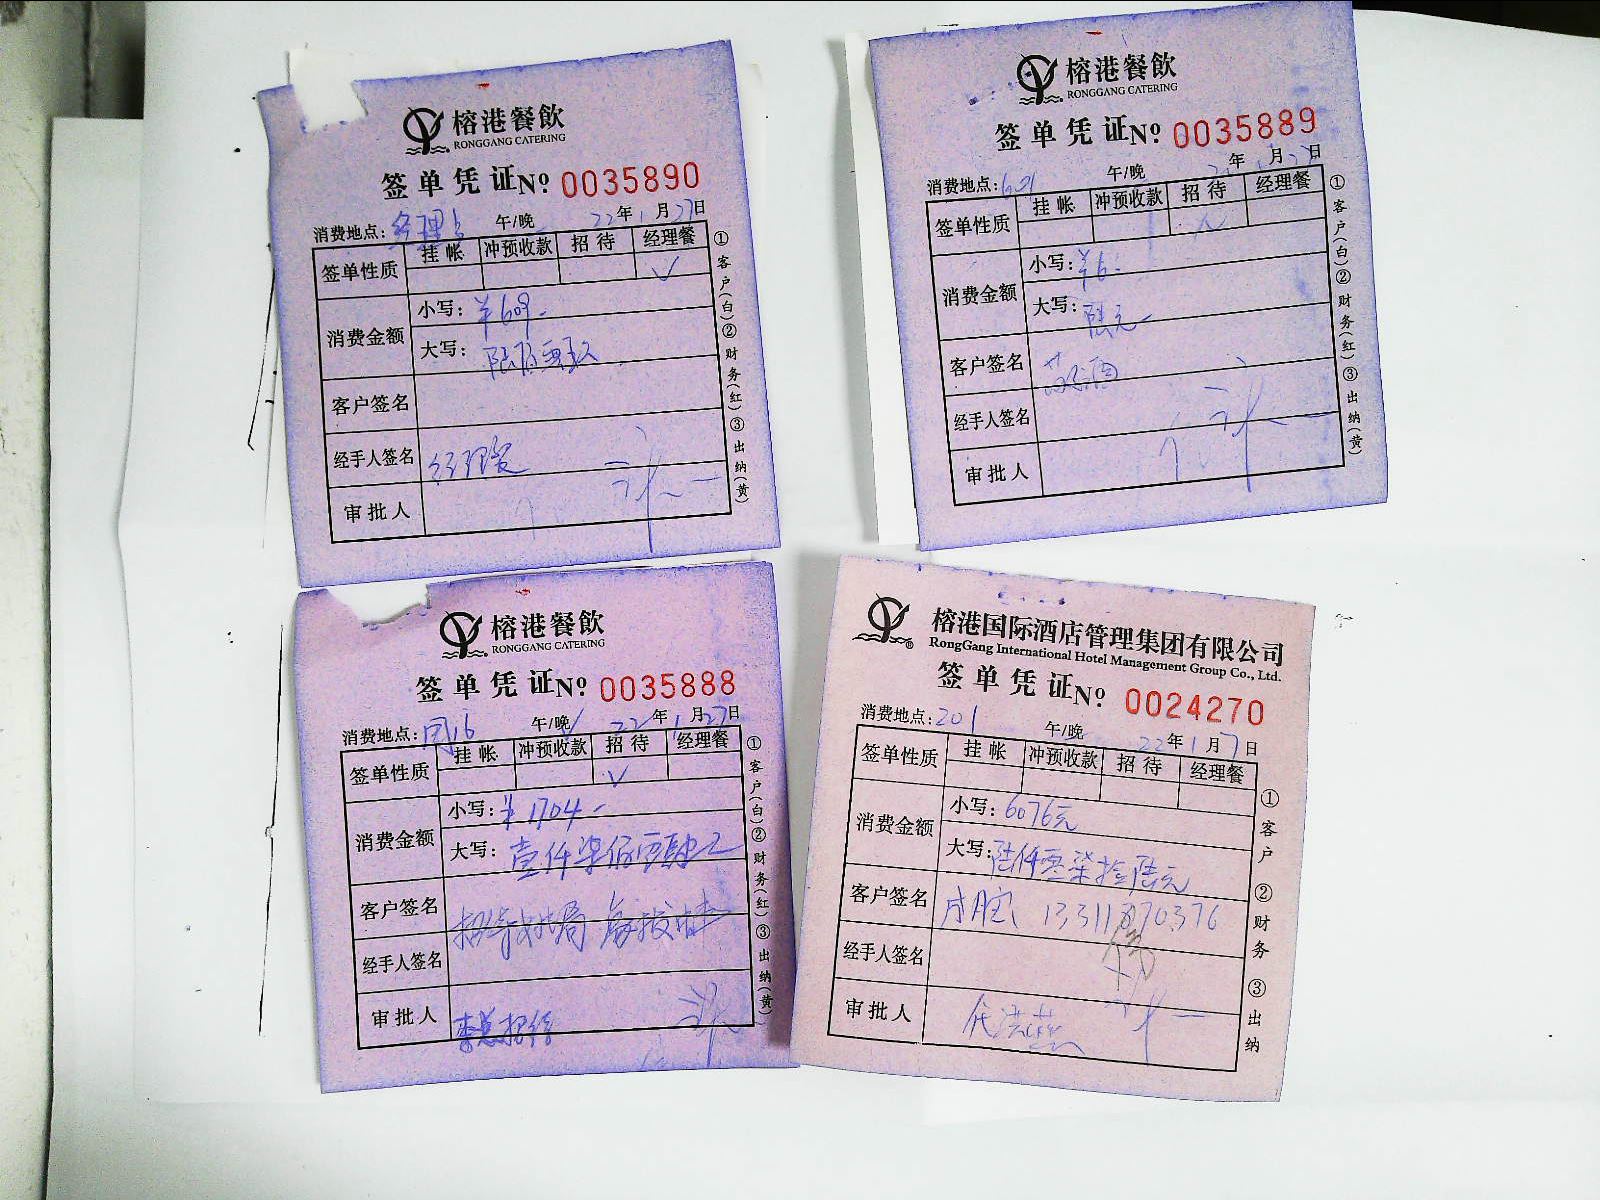 榕港餐飲
RONGGANG CATERING
签单凭证 № 0035890
消费地点: 午/晚 22年1月27日
签单性质 挂帐 冲预收款 招待 经理餐
✓
消费金额 小写: ¥609.-
大写: 陆佰零玖
客户签名
经手人签名 经理餐
审批人
①客户(白)②财务(红)③出纳(黄)
榕港餐飲
RONGGANG CATERING
签单凭证 № 0035889
消费地点: 601 午/晚 年 月 日
签单性质 挂帐 冲预收款 招待 经理餐
消费金额 小写: ¥6.-
大写: 陆元
客户签名
经手人签名
审批人
①客户(白)②财务(红)③出纳(黄)
榕港餐飲
RONGGANG CATERING
签单凭证 № 0035888
消费地点: 午/晚 22年1月27日
签单性质 挂帐 冲预收款 招待 经理餐
✓
消费金额 小写: ¥1704.-
大写: 壹仟柒佰零肆元
客户签名
经手人签名
审批人 李总招待
①客户(白)②财务(红)③出纳(黄)
榕港国际酒店管理集团有限公司
RongGang International Hotel Management Group Co., Ltd.
签单凭证 № 0024270
消费地点: 201 午/晚 22年1月7日
签单性质 挂帐 冲预收款 招待 经理餐
消费金额 小写: 6076元
大写: 陆仟零柒拾陆元
客户签名
经手人签名
审批人
①客户②财务③出纳